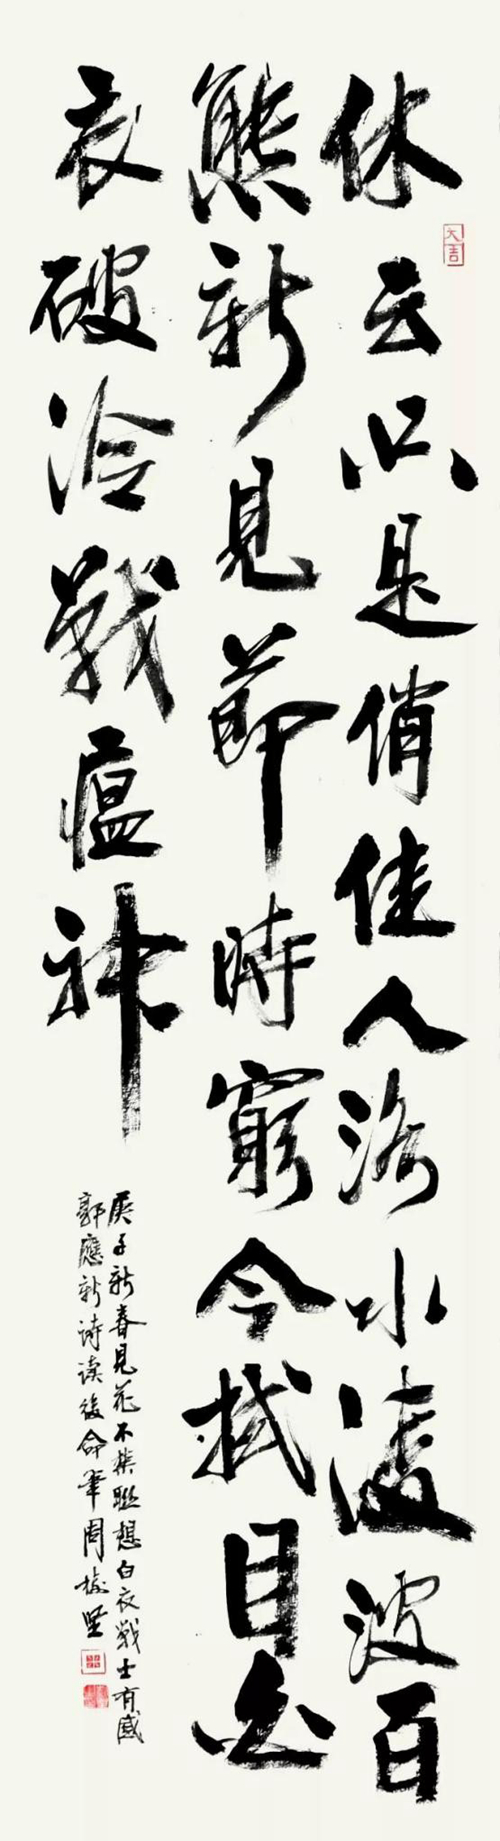 休云只是俏佳人洛水凌波百
態新見節時窮今拭目白
衣破冷戰瘟神
庚子新春見花不禁聯想白衣戰士有感
郭應新诗读後命筆周樹堅
大吉